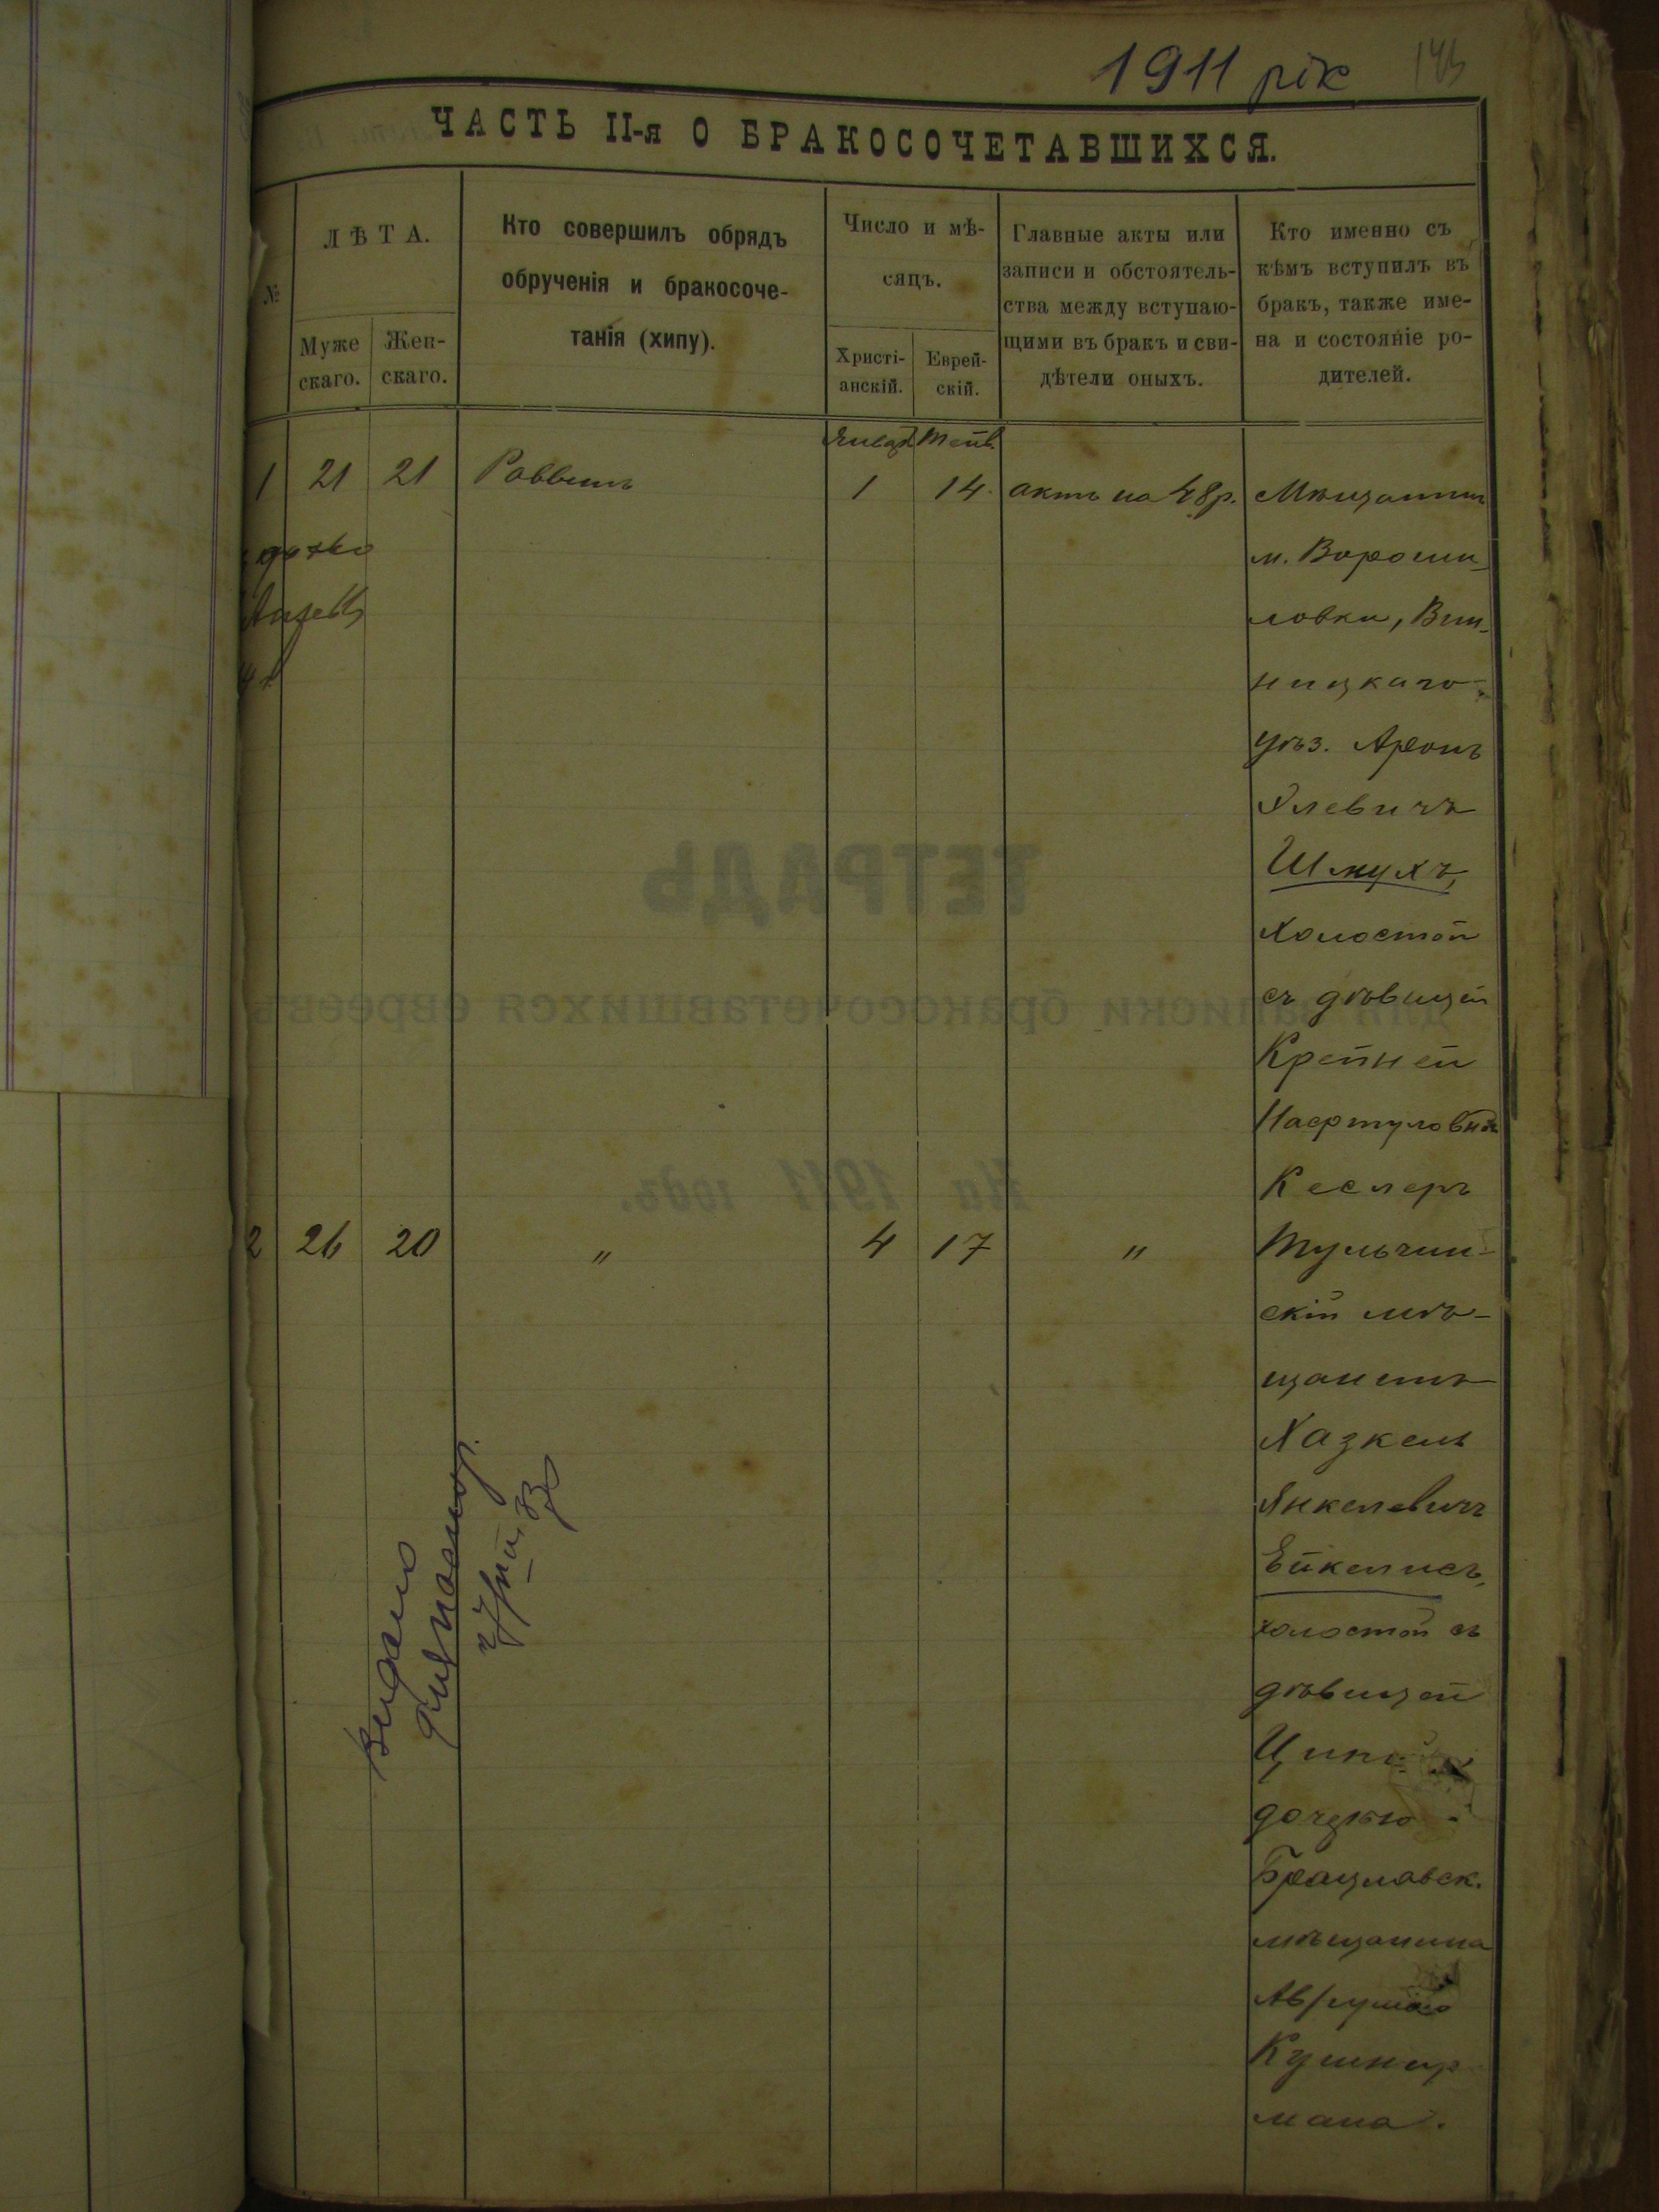 1911 рік
143
ЧАСТЬ II-я О БРАКОСОЧЕТАВШИХСЯ.
№
ЛѢТА.
Муже
скаго.
Жен-
скаго.
Кто совершилъ обрядъ
обрученія и бракосоче-
танія (хипу).
Число и мѣ-
сяцъ.
Христі-
анскій.
Еврей-
скій.
Главные акты или
записи и обстоятель-
ства между вступаю-
щими въ бракъ и сви-
дѣтели оныхъ.
Кто именно съ
кѣмъ вступилъ въ
бракъ, также име-
на и состояніе ро-
дителей.
Январ. Тейв.
1 21 21 Раввинъ 1 14 актъ на 48 р. Мѣщанинъ
м. Вороши-
ловки, Вин-
ницкаго
уѣз. Аронъ
Улевичъ
Шмухъ,
холостой
съ дѣвицей
Крейней
Нафтуловной
Кеслеръ
2 26 20 " 4 17 " Тульчин-
скій мѣ-
щанинъ
Хазкель
Янкелевичъ
Ейкелисъ,
холостой съ
дѣвицей
дочерью
Брацлавск.
мѣщанина
Аврума
Кушнир
мана.
Видано
ТЕТРАДЬ
для записки бракосочетавшихся евреевъ
На 1911 годъ.